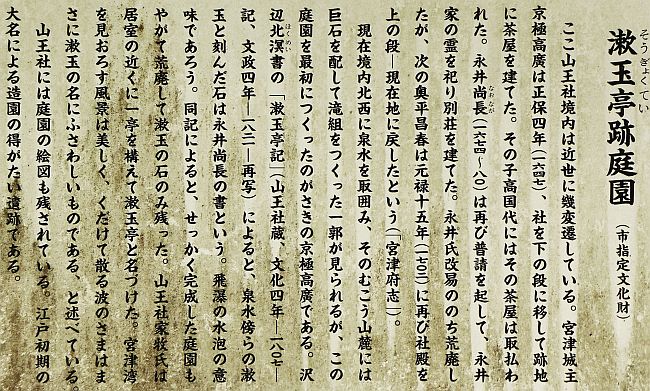 漱玉亭跡庭園
そうぎょくてい
(市指定文化財)
ここ山王社境内は近世に幾変遷している。宮津城主
京極高廣は正保四年(一六四七)、社を下の段に移して跡地
に茶屋を建てた。その子高国代にはその茶屋は取払わ
れた。永井尚長(一六七四〜八〇)は再び普請を起して、永井
なおなが
家の霊を祀り別荘を建てた。永井氏改易ののち荒廃し
たが、次の奥平昌春は元禄十五年(一七〇二)に再び社殿を
上の段―現在地に戻したという(「宮津府志」)。
現在境内北西に泉水を取囲み、そのむこう山麓には
巨石を配して滝組をつくった一郭が見られるが、この
庭園を最初につくったのがさきの京極高廣である。沢
辺北溟書の「漱玉亭記」(山王社蔵、文化四年―一八〇七―
ほくめい
記、文政四年―一八二一再写)によると、泉水傍らの漱
玉と刻んだ石は永井尚長の書という。飛瀑の水泡の意
味であろう。同記によると、せっかく完成した庭園も
やがて荒廃して漱玉の石のみ残った。山王社家牧氏は
居室の近くに一亭を構えて漱玉亭と名づけた。宮津湾
を見おろす風景は美しく、くだけて散る波のさまはま
さに漱玉の名にふさわしいものである、と述べている。
山王社には庭園の絵図も残されている。江戸初期の
大名による造園の得がたい遺跡である。